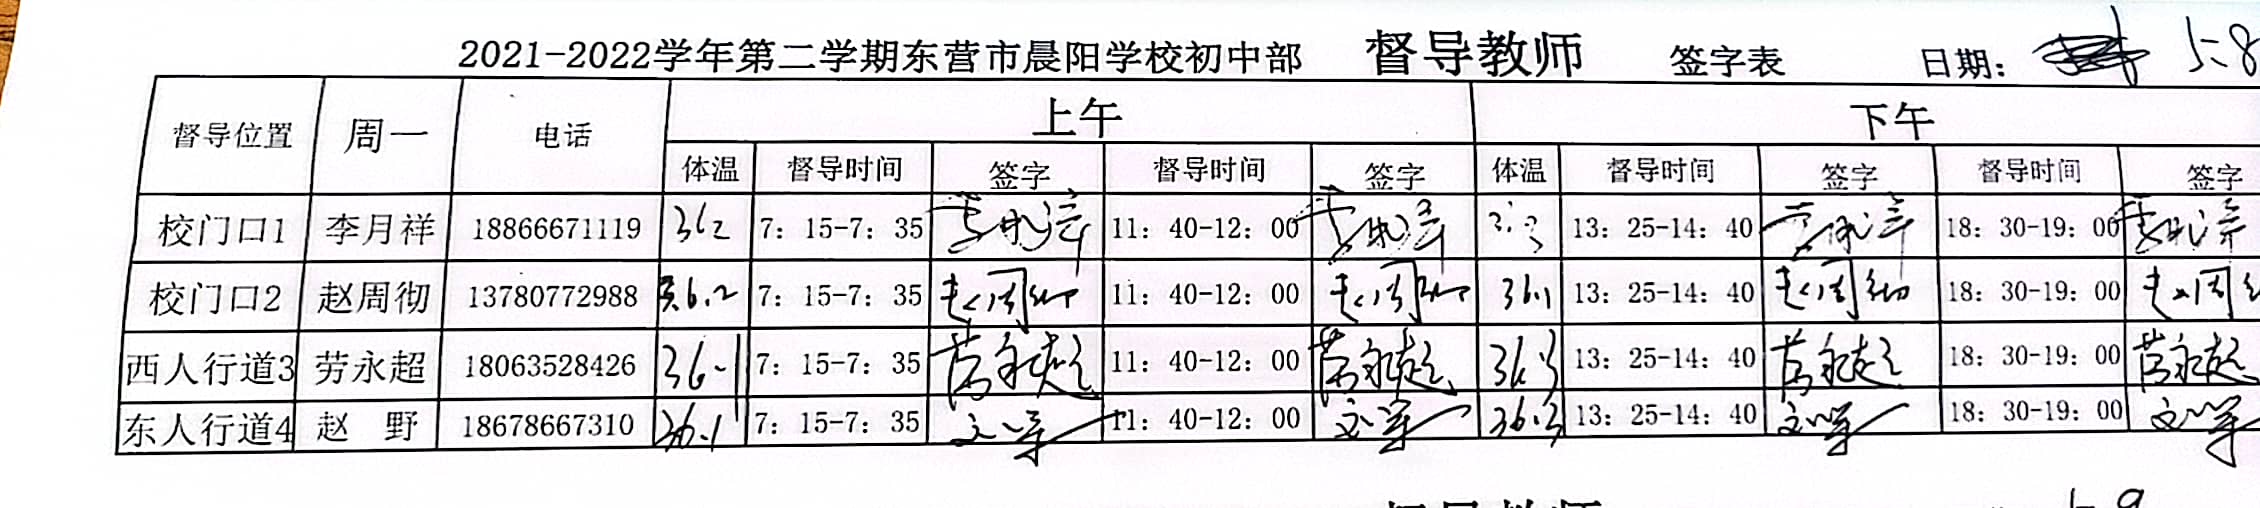 2021-2022学年第二学期东营市晨阳学校初中部 督导教师 签字表 日期： 5.8
督导位置 周一 电话 上午 下午
体温 督导时间 签字 督导时间 签字 体温 督导时间 签字 督导时间 签字
校门口1 李月祥 18866671119 36.2 7：15-7：35 李月祥 11：40-12：00 李月祥 13：25-14：40 李月祥 18：30-19：00 李月祥
校门口2 赵周彻 13780772988 36.2 7：15-7：35 赵周彻 11：40-12：00 赵周彻 36.1 13：25-14：40 赵周彻 18：30-19：00 赵周彻
西人行道3 劳永超 18063528426 36.1 7：15-7：35 劳永超 11：40-12：00 劳永超 36.3 13：25-14：40 劳永超 18：30-19：00 劳永超
东人行道4 赵 野 18678667310 36.1 7：15-7：35 11：40-12：00 36.3 13：25-14：40 18：30-19：00
督导教师